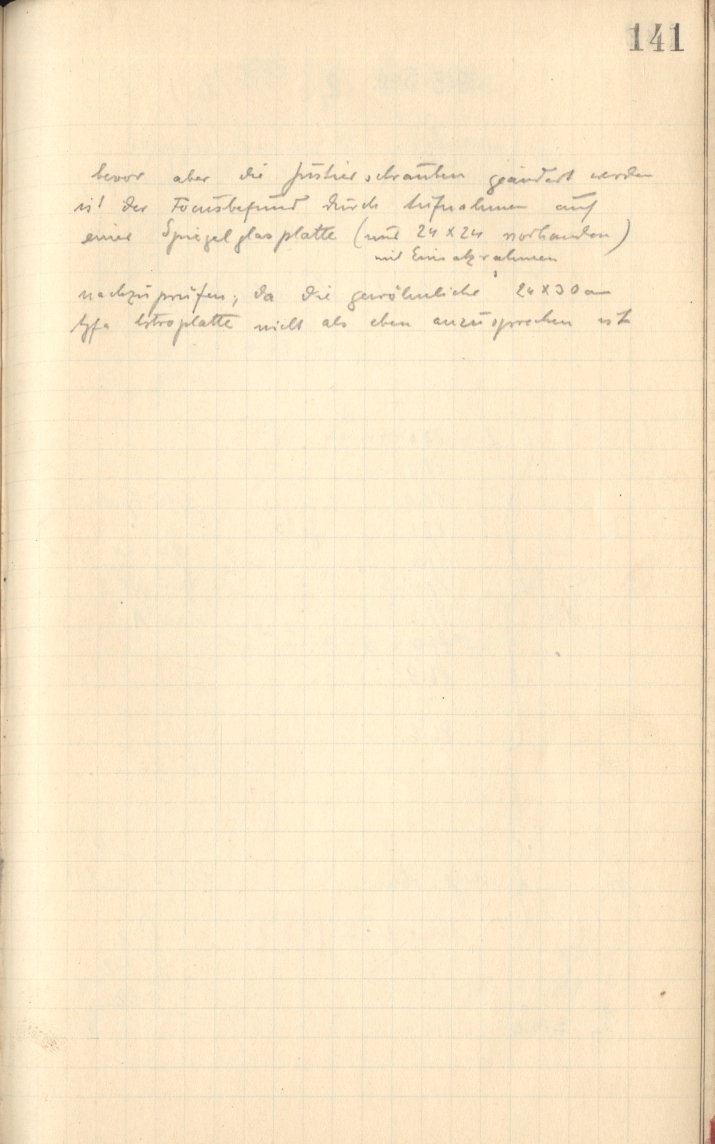 141
bevor aber die Justierschrauben geändert werden
ist der Focusbefund durch Aufnahmen auf
einer Spiegelglasplatte (nur 24 x 24 vorhanden)
mit Einsatzrahmen
nachzuprüfen, da die gewöhnliche 24 x 30 cm
Agfa Astroplatte nicht als eben anzusprechen ist